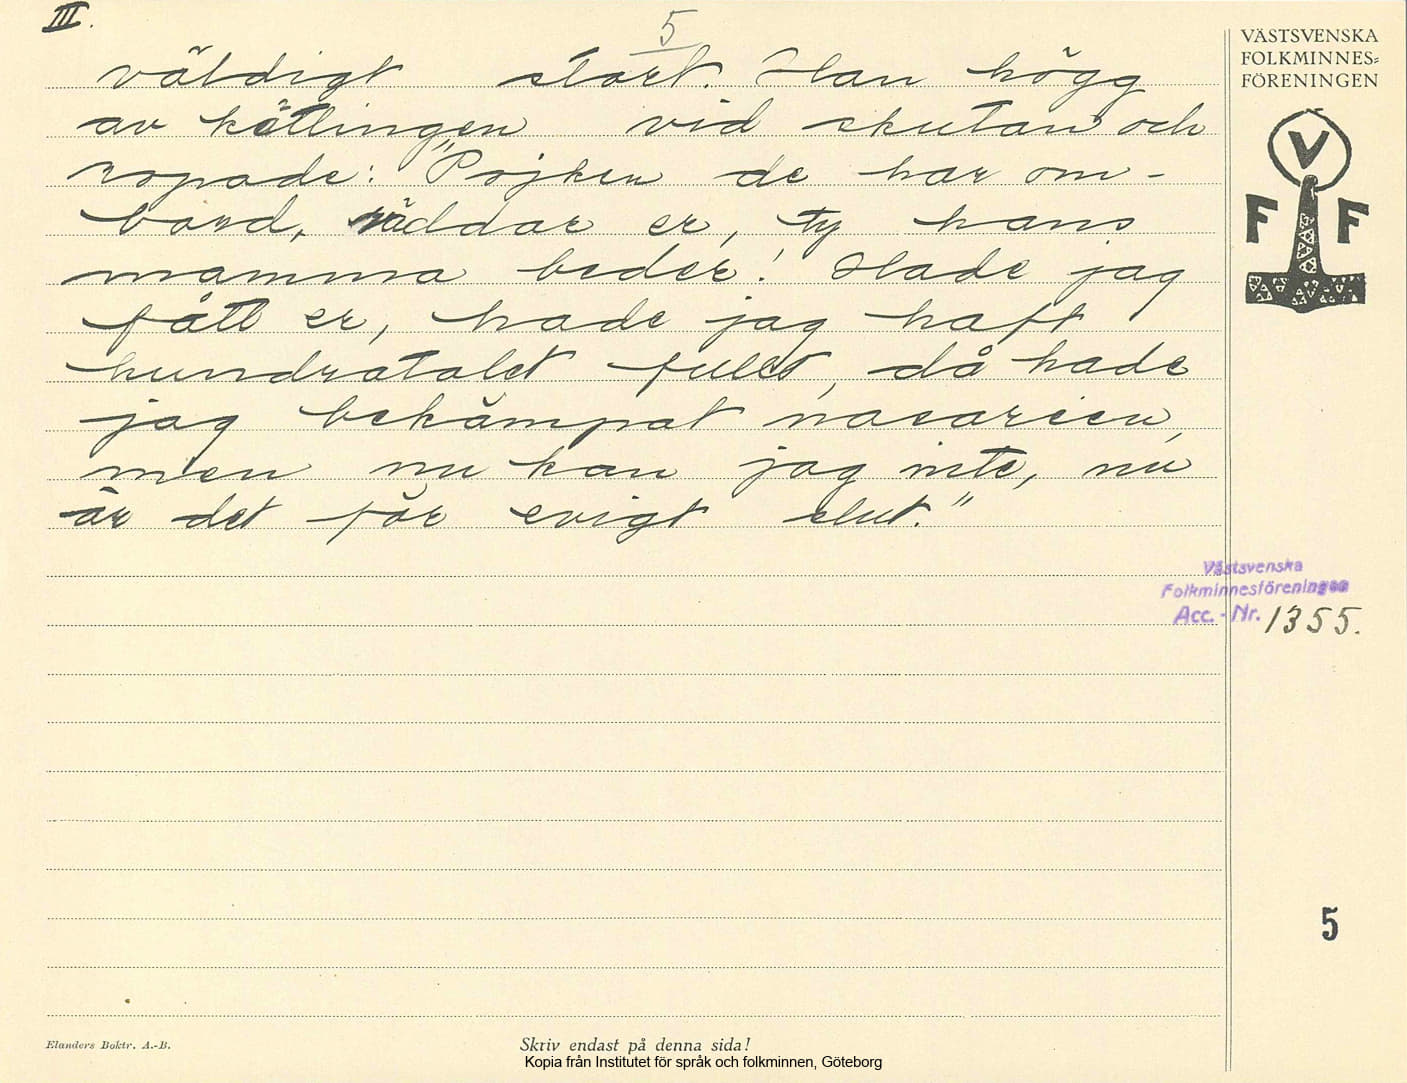 III.
5
väldigt stort. Han högg
av kättingen vid skutan och
ropade: "Pojken de har om-
bord, räddar er, ty hans
mamma beder! Hade jag
fått er, hade jag haft
hundratalet fullt, då hade
jag bekämpat
men nu kan jag inte, nu
är det för evigt slut."
VÄSTSVENSKA
FOLKMINNES=
FÖRENINGEN
V
F F
Västsvenska
Folkminnesföreningen
Acc. - Nr. 1355.
5
Elanders Boktr. A.-B.
Skriv endast på denna sida!
Kopia från Institutet för språk och folkminnen, Göteborg